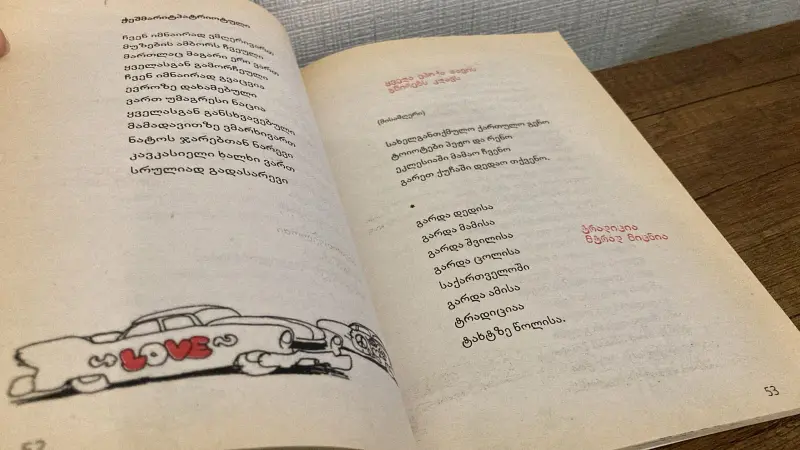 ჭეშმარიტპატრიოტული
ჩვენ იმნაირად ვმღერივართ
მუზების ამბორს ჩვეული
მართლაც მაგარი ერი ვართ
ყველასგან გამორჩეული
ჩვენ იმნაირად გვაცვია
ევროზე დახამებული
ვართ უმაგრესი ნაცია
ყველასგან განსხვავებული
მამადავითზე ვმარხივართ
ნატოს ჯარებთან ნარევი
კავკასიელი ხალხი ვართ
სრულიად გადასარევი
LOVE
52
ყველა ეპოსა თავის
(მისამღერი)
სახელგანთქმულო ქართულო გენო
ტოიოტები პეჟო და რენო
ეკლესიაში მამაო ჩვენო
გარეთ ქუჩაში დედაო თქვენო.
*
გარდა დედისა
გარდა მამისა
გარდა შვილისა
გარდა ცოლისა
საქართველოში
გარდა ამისა
ტრადიციაა
ტახტზე წოლისა.
ტრადიცია
53